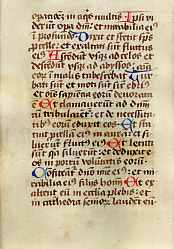 opationez in aqis multis Ipsi vi
derūt opa dm̄i: et mirabilia eiꝰ
in profundo Dixit et stetit sp̄s
pcelle: et exaltati sūt fluctus
eiꝰ Ascēdūt vsqꝫ ad celos et
descēdūt vsqꝫ ad abyssos:
eoꝝ in malis tabescebat Tur
bati sūt et moti sūt sic̄ ebriꝰ
et ois sapiētia eoꝝ deuorata
est Et clamauerūt ad dn̄m
cū tribularēt: et de necessita
tibꝰ eoꝝ eduxit eos Et sta
pcellā eiꝰ in aurā: et si
luerūt fluctꝰ eiꝰ Et letati
sūt qa siluerūt: et deduxit eos
in portū volūtatis eoꝝ
Cōfiteāt dn̄o mīe eiꝰ: et mi
rabilia eiꝰ filijs hoīm Et ex
altēt eū in ecclīa plebis: et in
cathedra senioꝝ laudēt eū